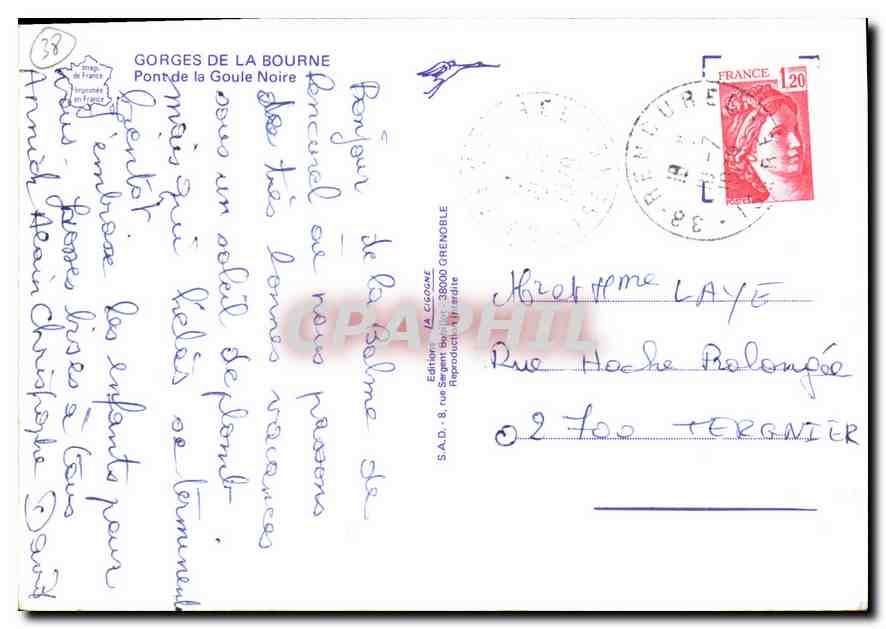 38
Imagé
de France
Imprimée
en France
GORGES DE LA BOURNE
Pont de la Goule Noire
Bonjour de la Balme de
Rencurel où nous passons
de très bonnes vacances
sous un soleil de plomb
mais qui hélas se terminent
bientôt
J'embrasse les enfants pour
nous - Grosses bises à tous
Annick Alain Christophe David
Editions LA CIGOGNE
S.A.D. - 8, rue Sergent Bobillot - 38000 GRENOBLE
Reproduction interdite
FRANCE 1,20
38 RENCUREL
Mr et Mme LAYE
Rue Hoche Prolongée
02700 TERGNIER
CPAPHIL